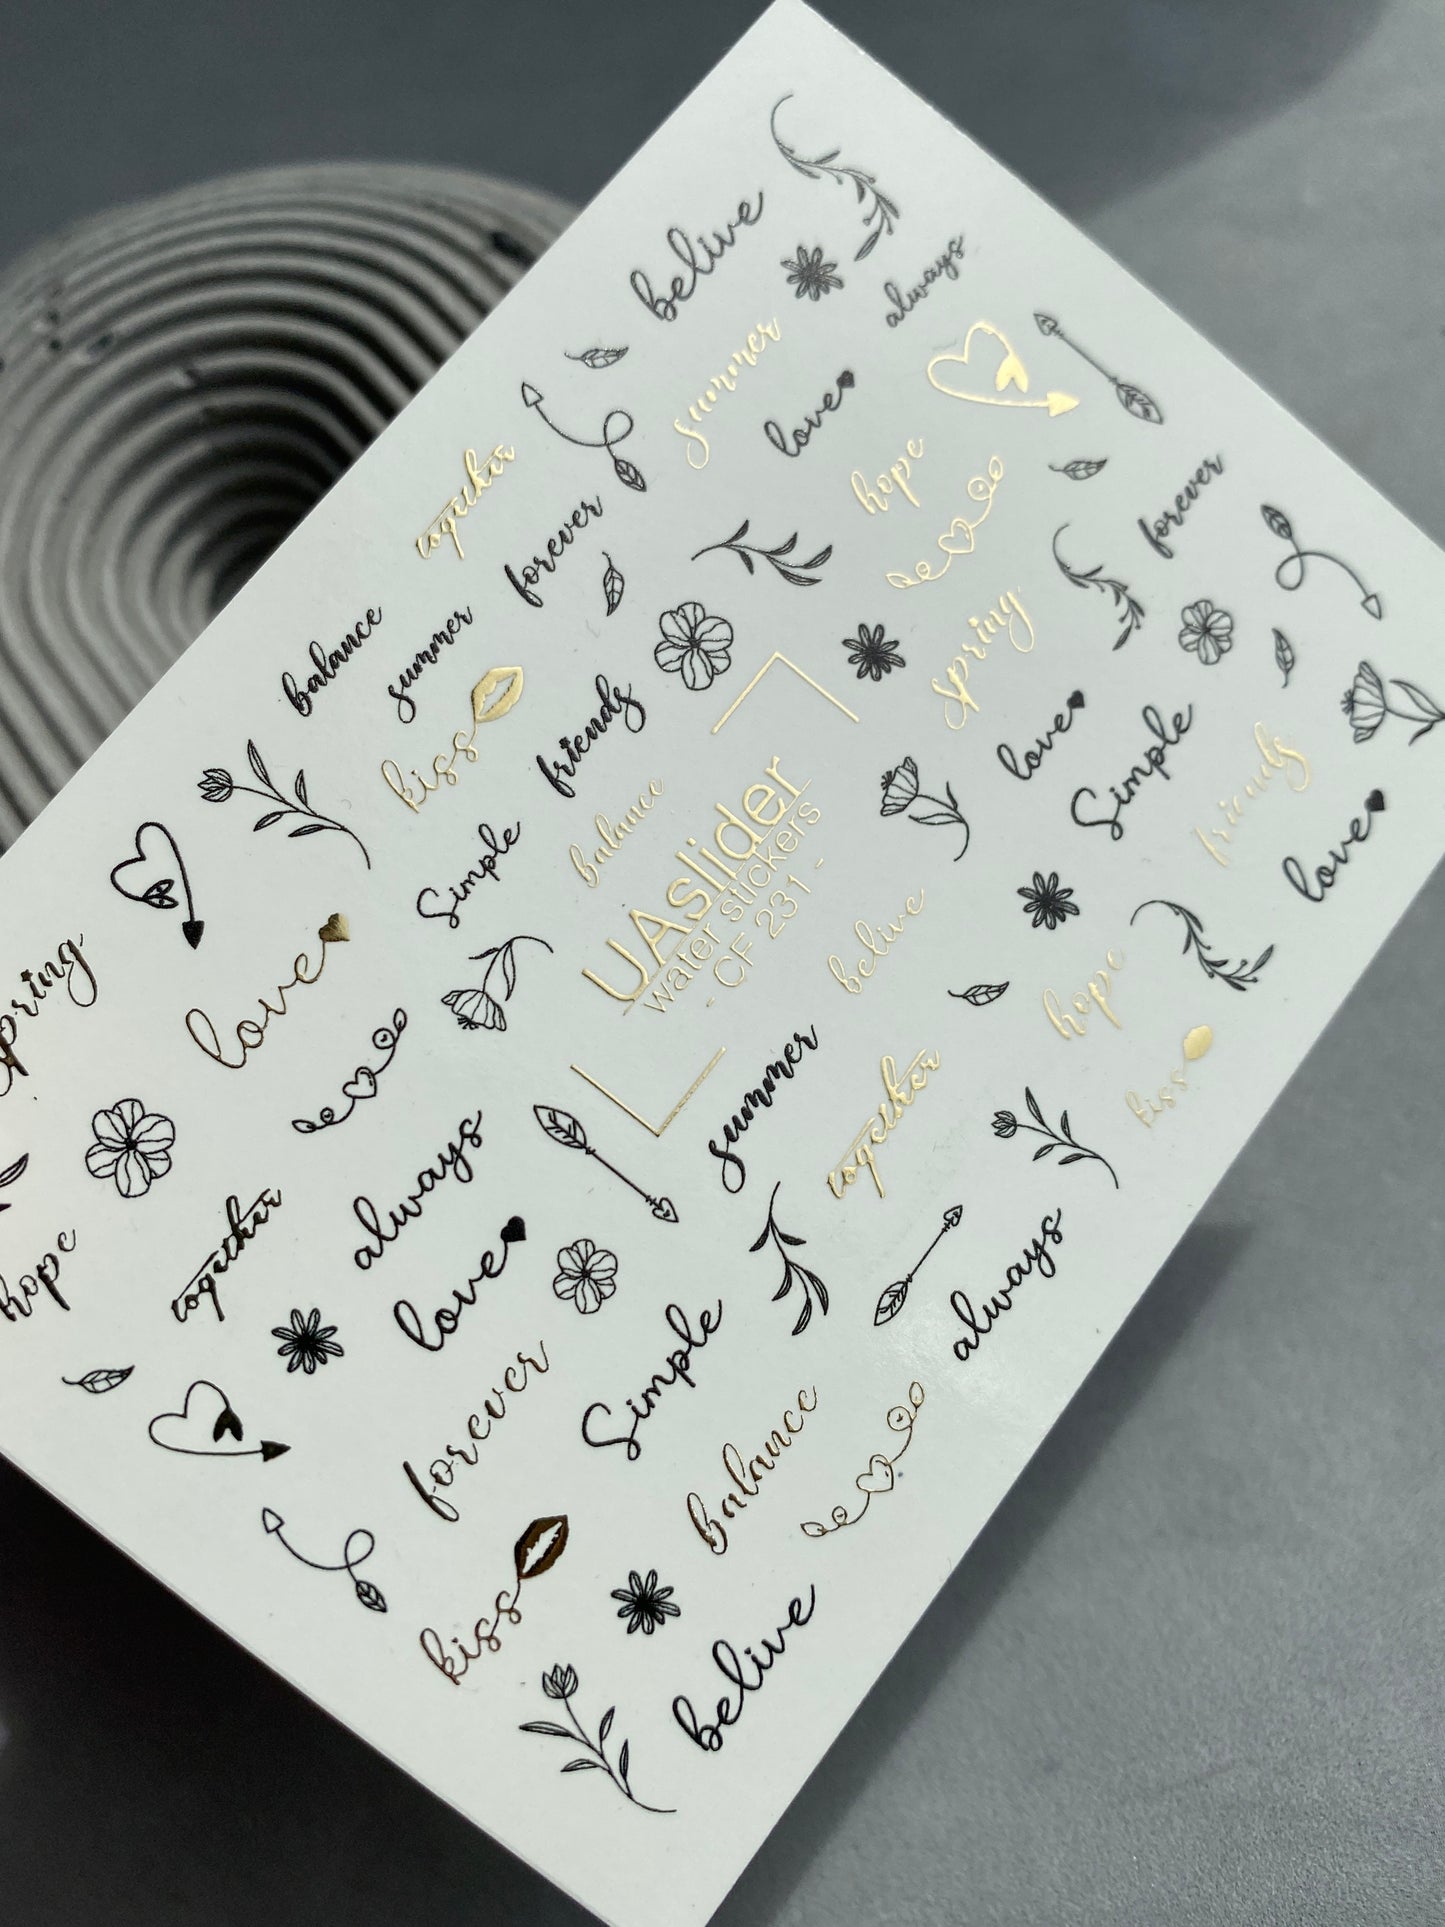 belive
always
summer
love
together
hope
forever
forever
balance
summer
spring
kiss
friends
love
Simple
balance
friends
UAslider
water stickers
- CF 231 -
Simple
love
belive
spring
love
hope
summer
together
kiss
always
hope
together
love
always
forever
Simple
balance
kiss
belive